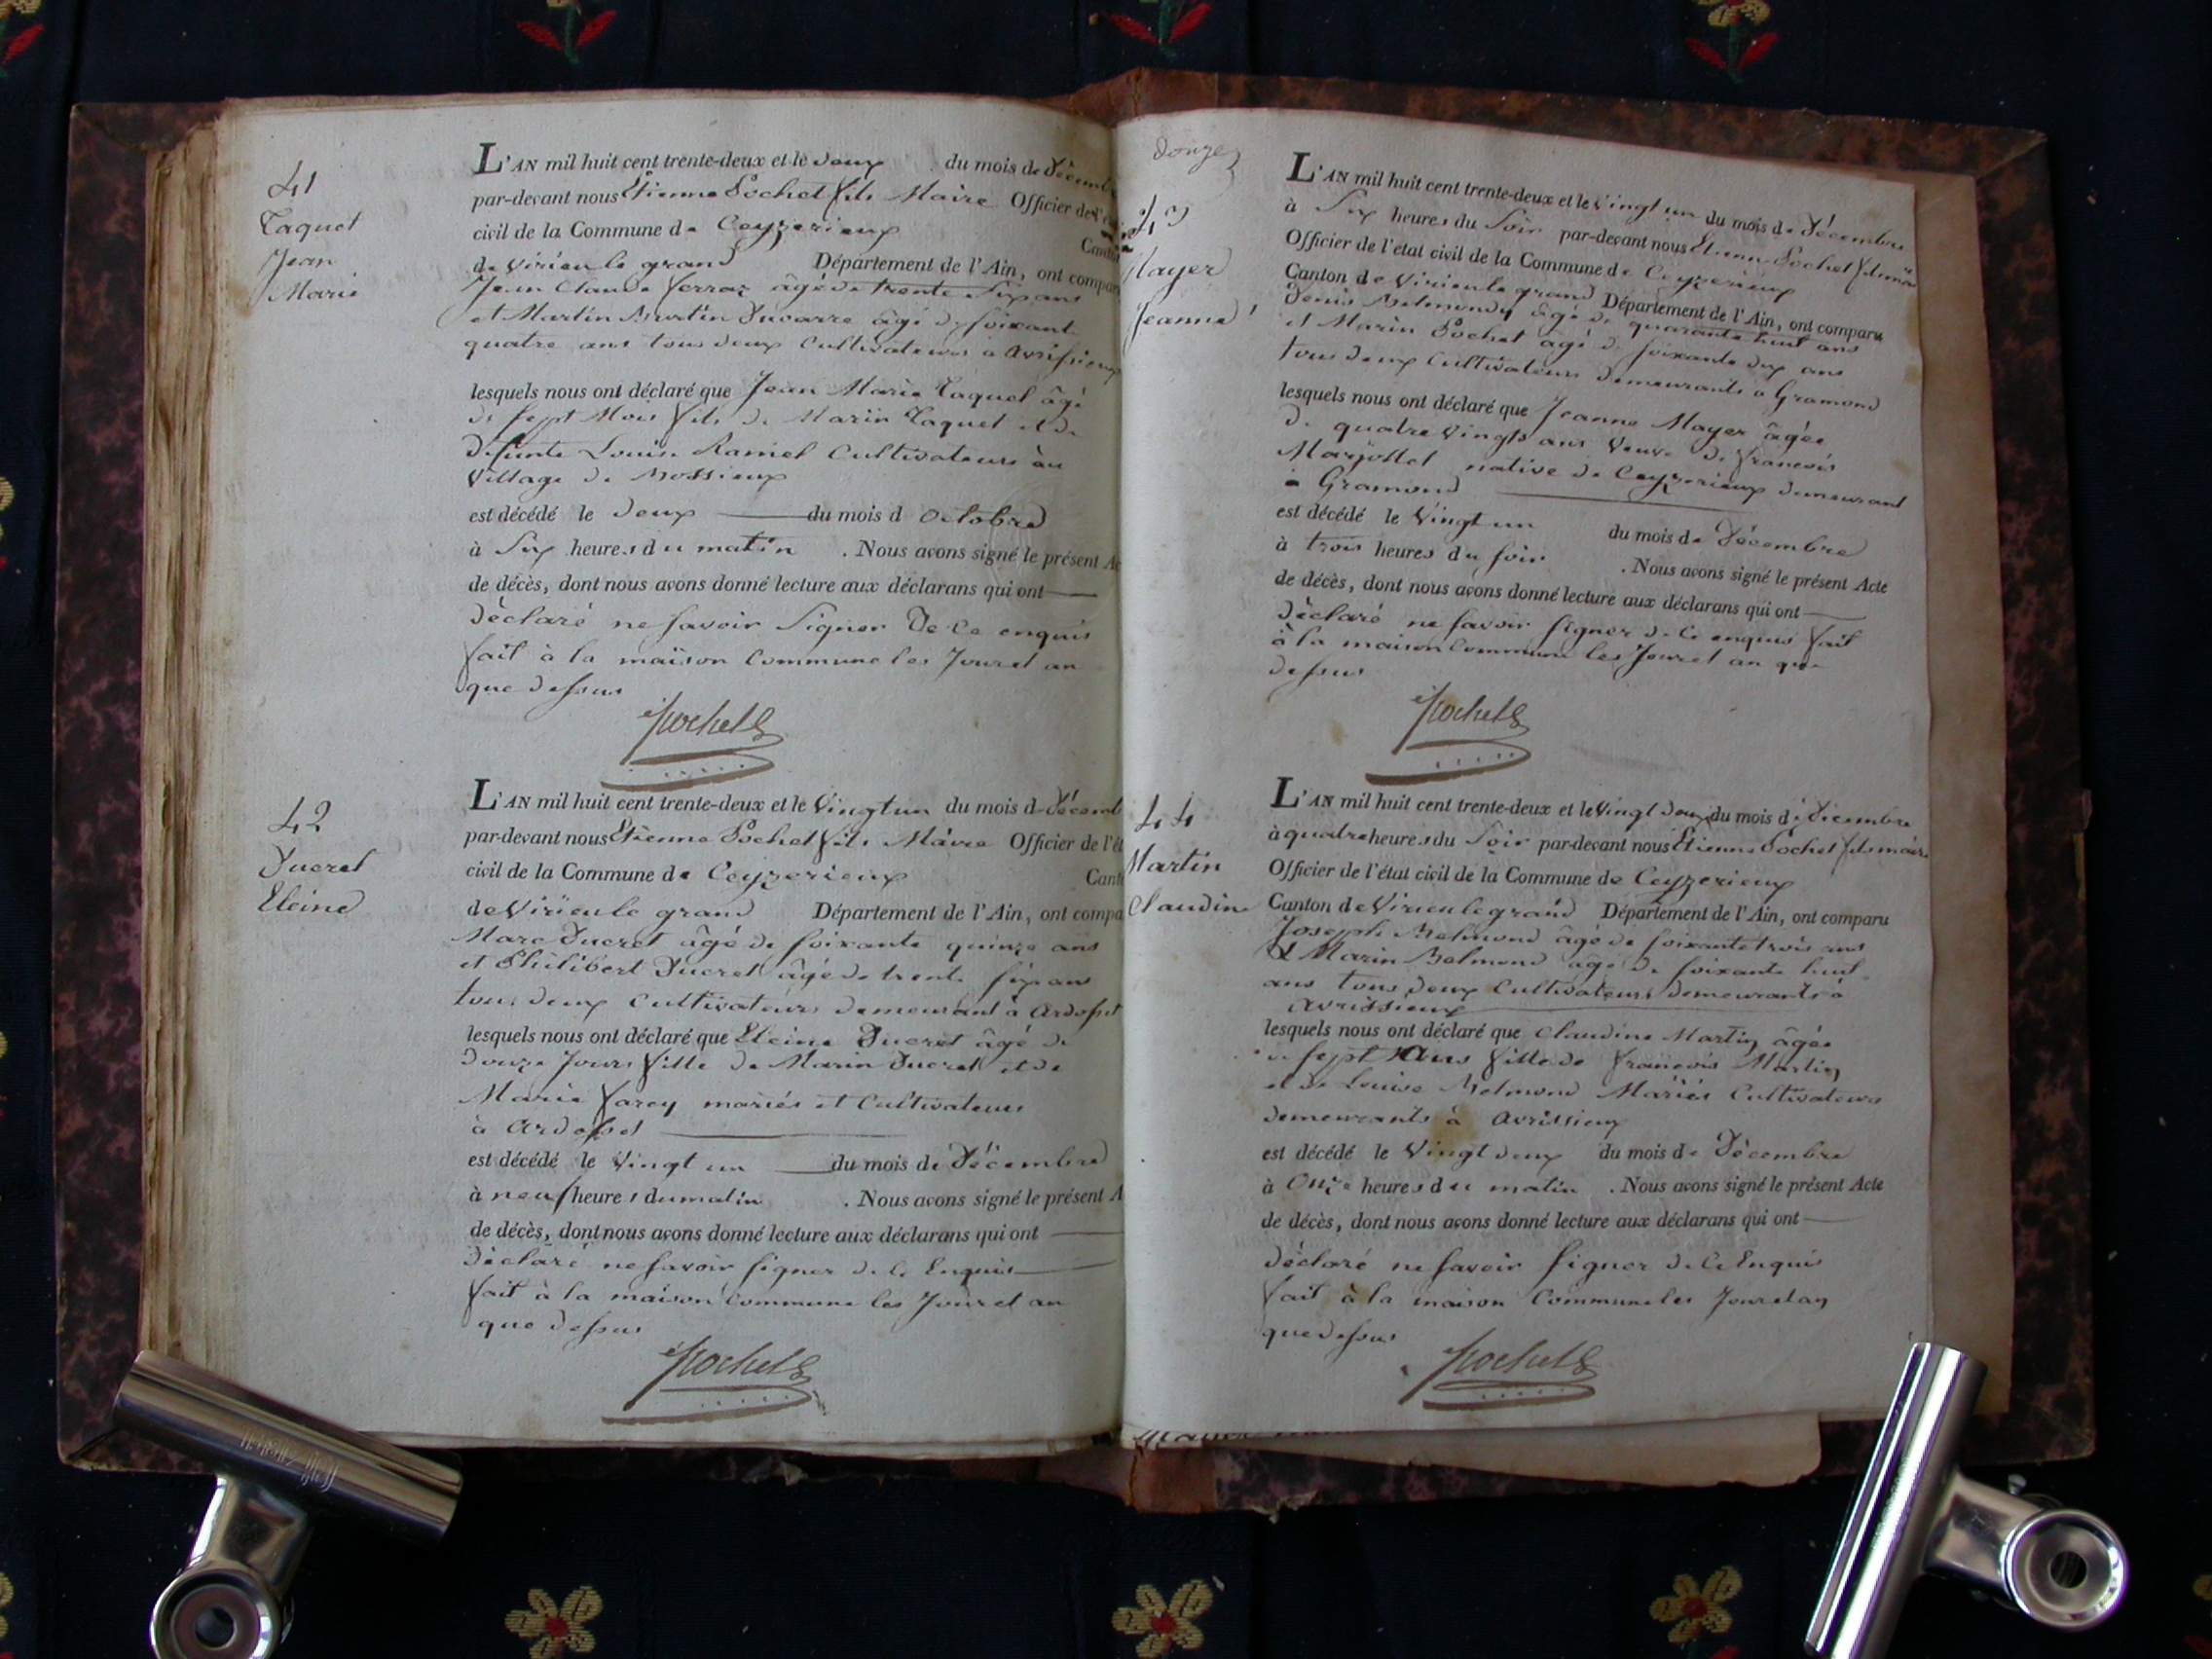 41
Taquet
Jean
Marie
L'AN mil huit cent trente-deux et le deux du mois de Décemb
par-devant nous Etienne Pochet fils Maire Officier de l'é
civil de la Commune de Ceyzerieux
Canton
de Virieu le grand Département de l'Ain, ont compar
Jean Claude ferraz âgé de trente Six ans
et Martin Burtin Ducarre âgé de soixante
quatre ans tous deux Cultivateurs à avrissieux
lesquels nous ont déclaré que Jean Marie Taquet âgé
de sept Mois fils de Marin Taquet et de
defunte Louise Ramel Cultivateurs au
Village de Mossieux
est décédé le deux du mois d octobre
à Six heures du matin . Nous avons signé le présent Ac
de décès, dont nous avons donné lecture aux déclarans qui ont
déclaré ne savoir Signer De Ce enquis
fait à la maison Commune les Jour et an
que dessus
Pochet
42
Ducret
Eleine
L'AN mil huit cent trente-deux et le Vingt un du mois d Décemb
par-devant nous Etienne Pochet fils Maire Officier de l'ét
civil de la Commune de Ceyzerieux
Cant
de Virieu le grand Département de l'Ain, ont compa
Marc Ducret âgé de soixante quinze ans
et Philibert Ducret âgé de trente six ans
tous deux Cultivateurs demeurant à Ardosset
lesquels nous ont déclaré que Eleine Ducret âgé de
douze Jours fille de Marin Ducret et de
Marie Varey mariés et Cultivateurs
à Ardosset
est décédé le Vingt un du mois de Décembre
à neuf heures du matin . Nous avons signé le présent A
de décès, dont nous avons donné lecture aux déclarans qui ont
Déclaré ne savoir signer de Ce Enquis
fait à la maison Commune les Jour et an
que dessus
Pochet
Douze
43
Mayer
Jeanne
L'AN mil huit cent trente-deux et le Vingt un du mois de Décembre
à Six heures du Soir par-devant nous Etienne Pochet fils mai
Officier de l'état civil de la Commune de Ceyzerieux
Canton de Virieu le grand Département de l'Ain, ont comparu
Denis Belmondy âgé de quarante huit ans
et Marin Pochet âgé de soixante dix ans
tous deux Cultivateurs demeurants à Gramond
lesquels nous ont déclaré que Jeanne Mayer âgée
de quatre Vingts ans Veuve de francois
Marjollet native de Ceyzerieux demeurant
à Gramond
est décédé le Vingt un du mois de Décembre
à trois heures du soir . Nous avons signé le présent Acte
de décès, dont nous avons donné lecture aux déclarans qui ont
Déclaré ne savoir signer de Ce enquis fait
à la maison Commune les Jour et an que
dessus
Pochet
44
Martin
Claudine
L'AN mil huit cent trente-deux et le Vingt deux du mois de Decembre
à quatre heures du Soir par-devant nous Etienne Pochet fils maire
Officier de l'état civil de la Commune de Ceyzerieux
Canton de Virieu le grand Département de l'Ain, ont comparu
Joseph Belmond âgé de soixante trois ans
& Marin Belmond âgé de soixante huit
ans tous deux Cultivateurs demeurants à
Avrissieux
lesquels nous ont déclaré que Claudine Martin âgée
de sept Ans fille de francois Martin
et de Louise Belmond Mariés Cultivateurs
demeurants à Avrissieux
est décédé le Vingt deux du mois de Décembre
à Onze heures du matin . Nous avons signé le présent Acte
de décès, dont nous avons donné lecture aux déclarans qui ont
déclaré ne savoir signer de Ce Enquis
fait à la maison Commune les Jour et an
que dessus
Pochet